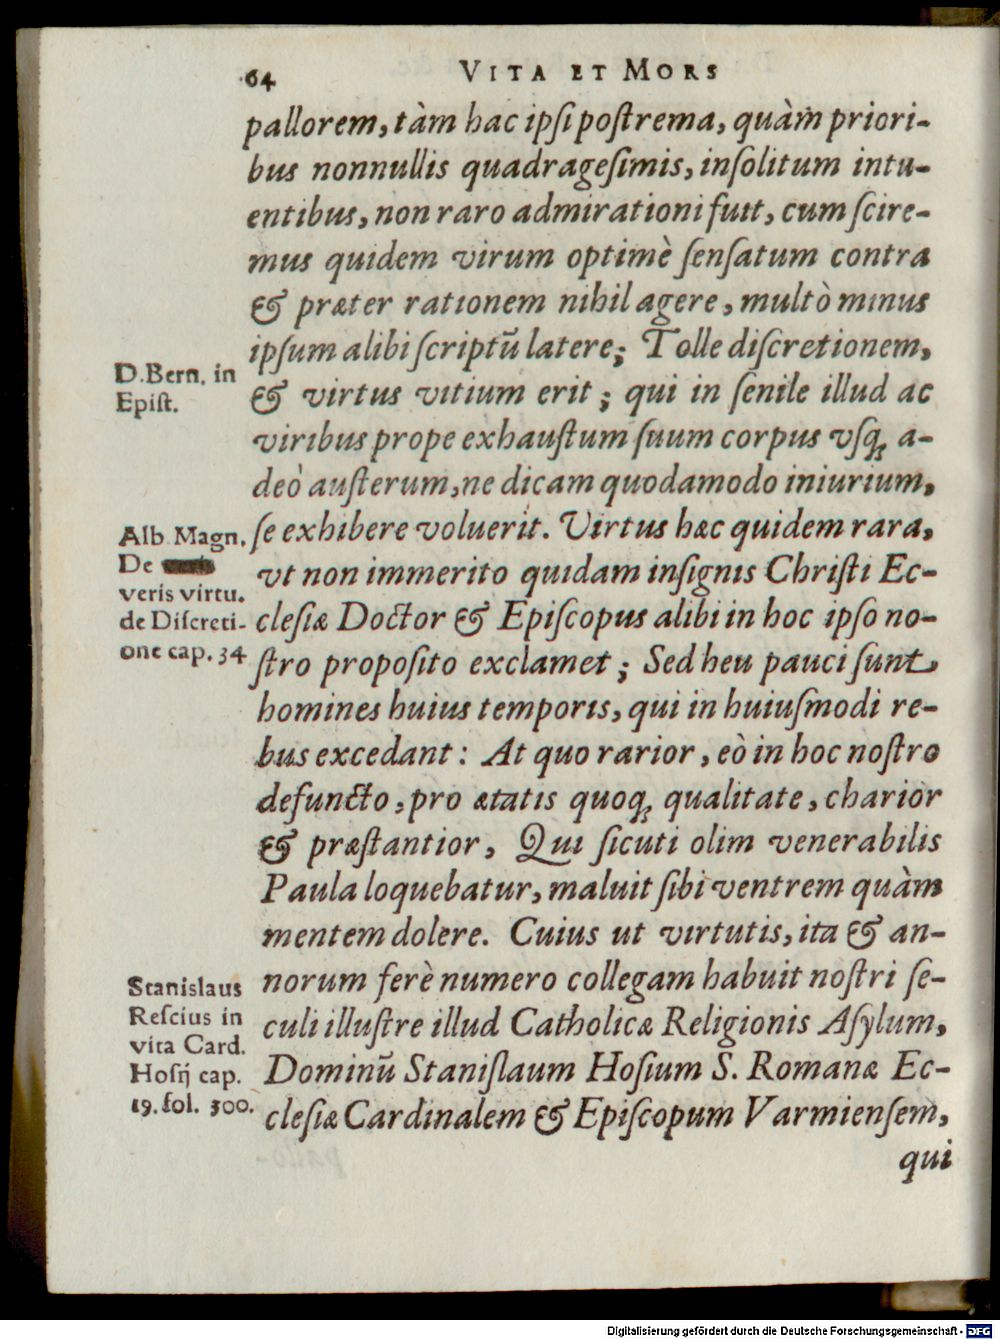 64 VITA ET MORS
pallorem, tàm hac ipſi poſtrema, quàm priori-
bus nonnullis quadrageſimis, inſolitum intu-
entibus, non raro admirationi fuit, cum ſcire-
mus quidem virum optimè ſenſatum contra
& præter rationem nihil agere, multò minus
ipſum alibi ſcriptũ latere; Tolle diſcretionem,
& virtus vitium erit; qui in ſenile illud ac
viribus prope exhauſtum ſuum corpus vſq; a-
deò auſterum, ne dicam quodamodo iniurium,
ſe exhibere voluerit. Virtus hæc quidem rara,
vt non immerito quidam inſignis Chriſti Ec-
cleſiæ Doctor & Epiſcopus alibi in hoc ipſo no-
ſtro propoſito exclamet; Sed heu pauci ſunt
homines huius temporis, qui in huiuſmodi re-
bus excedant: At quo rarior, eò in hoc noſtro
defuncto, pro ætatis quoq; qualitate, charior
& præſtantior, Qui ſicuti olim venerabilis
Paula loquebatur, maluit ſibi ventrem quàm
mentem dolere. Cuius ut virtutis, ita & an-
norum ferè numero collegam habuit noſtri ſe-
culi illuſtre illud Catholicæ Religionis Aſylum,
Dominũ Staniſlaum Hoſium S. Romanæ Ec-
cleſiæ Cardinalem & Epiſcopum Varmienſem,
qui
D. Bern. in
Epiſt.
Alb. Magn.
De
veris virtu.
de Diſcreti-
one cap. 34
Stanislaus
Reſcius in
vita Card.
Hoſij cap.
19. fol. 300.
Digitalisierung gefördert durch die Deutsche Forschungsgemeinschaft - DFG